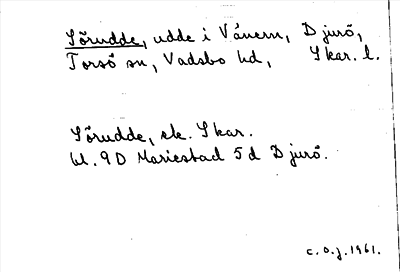 Sörudde, udde i Vänern, Djurö,
Torsö sn, Vadsbo hd, Skar. l.
Sörudde, ek. Skar.
bl. 9D Mariestad 5d Djurö.
c.o.j. 1961.